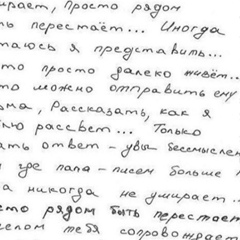 ирает, просто рядом
ть перестаёт... Иногда
таюсь я представить...
то просто далеко живёт...
то можно отправить ему
ма, Рассказать, как я
лю рассвет... Только
ать ответ - увы бессмыслен
и где папа - писем больше н
а никогда не умирает...
сто рядом быть перестает
елом тебя сопровождает